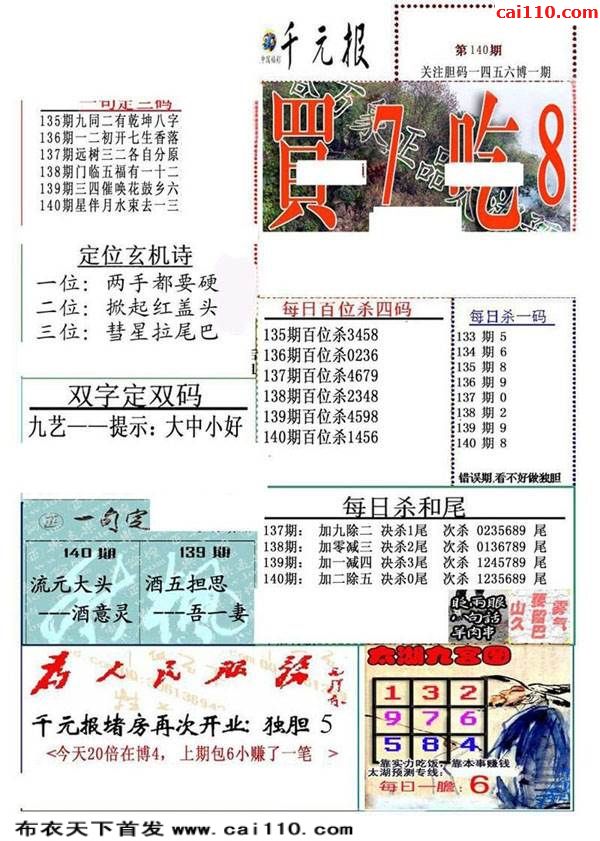 cai110.com
中国福彩
千元报
第140期
关注胆码一四五六博一期
一句定三码
135期九同二有乾坤八字
136期一二初开七生香落
137期远树三二各自分原
138期门临五福有一十二
139期三四催唤花鼓乡六
140期星伴月水束去一三
買7吃8
定位玄机诗
一位：两手都要硬
二位：掀起红盖头
三位：彗星拉尾巴
每日百位杀四码
135期百位杀3458
136期百位杀0236
137期百位杀4679
138期百位杀2348
139期百位杀4598
140期百位杀1456
每日杀一码
133 期 5
134 期 6
135 期 8
136 期 9
137 期 0
138 期 2
139 期 9
140 期 8
错误期.看不好做独胆
双字定双码
九艺——提示：大中小好
每日杀和尾
137期： 加九除二 决杀1尾 次杀 0235689 尾
138期： 加零减三 决杀2尾 次杀 0136789 尾
139期： 加一减四 决杀3尾 次杀 1245789 尾
140期： 加二除五 决杀0尾 次杀 1235689 尾
正 一句定
140 期
流元大头
---酒意灵
139 期
酒五担思
---吾一妻
眨雨眼
八句話
羊肉串
雾气
葵留巴
山久
为人民服务
千元报堵房再次开业：独胆 5
<今天20倍在博4，上期包6小赚了一笔 >
太湖九宫图
1 3 2
9 7 6
5 8 4
靠实力吃饭，靠本事赚钱
太湖预测专线：
每日一胆：6
布衣天下首发 www.cai110.com